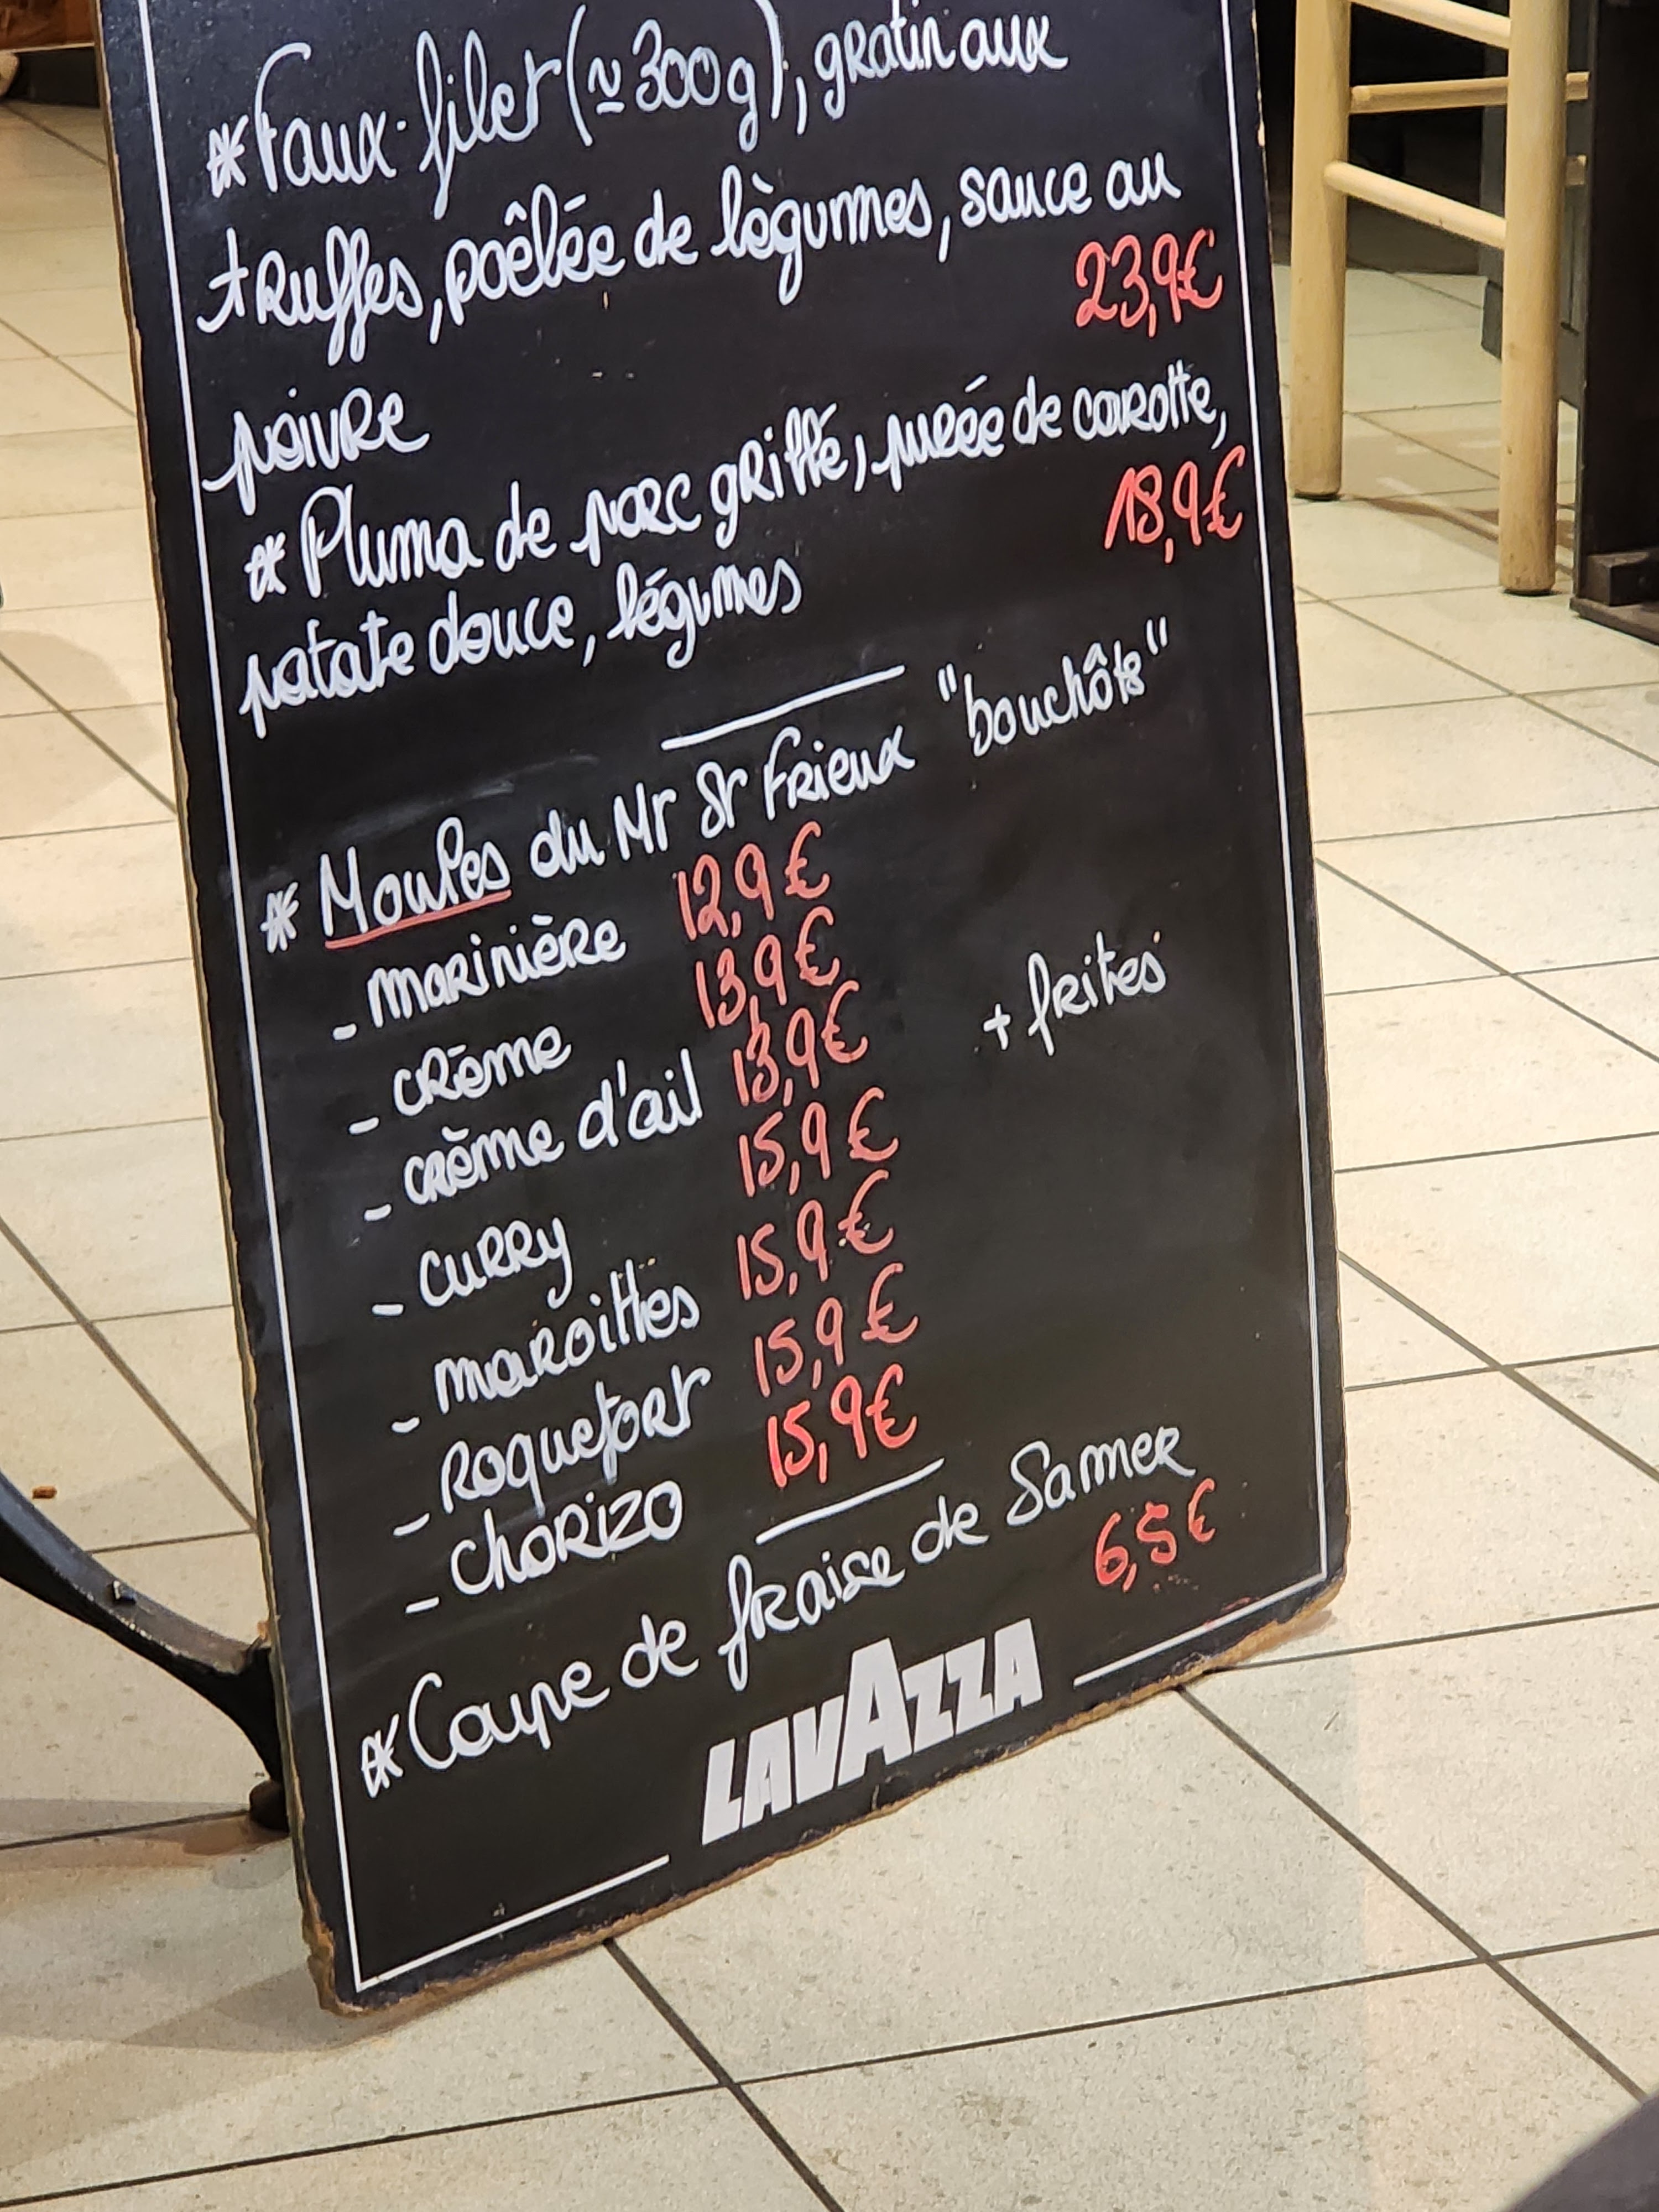 *Faux-filet (≃300g), gratin aux
truffes, poêlée de lègumes, sauce au
23,9€
poivre
* Pluma de porc grillé, purée de carotte,
18,9€
patate douce, légumes
* Moules du Mt St Frieux "bouchôts"
- marinière 12,9€
- crème 13,9€
- crème d'ail 13,9€
+ frites
- curry 15,9€
- maroilles 15,9€
- roquefort 15,9€
- chorizo 15,9€
*Coupe de fraise de Samer
6,5€
LAVAZZA